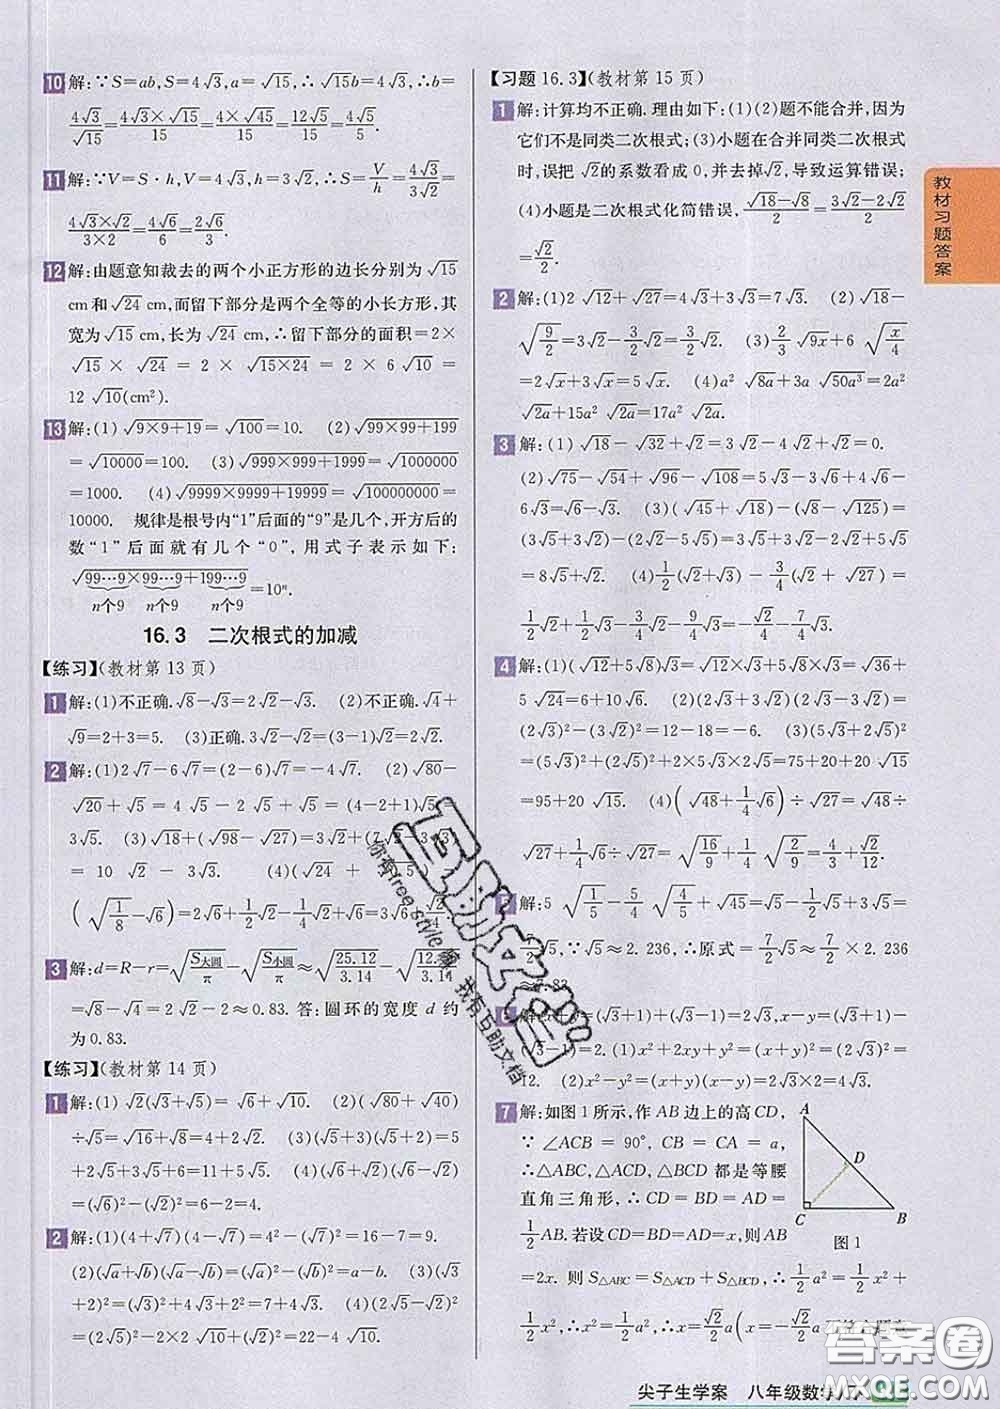 10 解:∵S=ab,S=4√3,a=√15,∴√15b=4√3,∴b=
4√3/√15=4√3×√15/15=4×√45/15=12√5/15=4√5/5.
11 解:∵V=S·h,V=4√3,h=3√2,∴S=V/h=4√3/3√2=
4√3×√2/3×2=4√6/6=2√6/3.
12 解:由题意知裁去的两个小正方形的边长分别为√15
cm和√24 cm,而留下部分是两个全等的小长方形,其
宽为√15 cm,长为√24 cm,∴留下部分的面积=2×
√15 × √24 = 2 × √15×24 = 2 × 6√10 =
12√10(cm²).
13 解:(1)√9×9+19=√100=10. (2)√99×99+199
=√10000=100. (3)√999×999+1999=√1000000
=1000. (4)√9999×9999+19999=√100000000=
10000. 规律是根号内“1”后面的“9”是几个,开方后的
数“1”后面就有几个“0”,用式子表示如下:
√99…9×99…9+199…9=10ⁿ.
n个9 n个9 n个9
16.3 二次根式的加减
【练习】(教材第13页)
1 解:(1)不正确.√8-√3=2√2-√3. (2)不正确.√4+
√9=2+3=5. (3)正确.3√2-√2=(3-1)√2=2√2.
2 解:(1)2√7-6√7=(2-6)√7=-4√7. (2)√80-
√20+√5=4√5-2√5+√5=(4-2+1)√5=
3√5. (3)√18+(√98-√27)=3√2+(7√2-3√3)
= 10√2 - 3√3. (4)(√24+
(√1/8-√6)=2√6+1/2√2-1/4√2+√6=3√6
3 解:d=R-r=√S大圆/π-√S小圆/π≈√25.12/3.14-√12.5/3.14
=√8-√4=2√2-2≈0.83. 答:圆环的宽度d约
为0.83.
【练习】(教材第14页)
1 解:(1)√2(√3+√5)=√6+√10. (2)(√80+√40)
÷√5=√16+√8=4+2√2. (3)(√5+3)(√5+2)=5
+2√5+3√5+6=11+5√5. (4)(√6+√2)(√6-√2)
=(√6)²-(√2)²=6-2=4.
2 解:(1)(4+√7)(4-√7)=4²-(√7)²=16-7=9.
(2)(√a+√b)(√a-√b)=(√a)²-(√b)²=a-b. (3)(√3
+2)²=(√3)²+4√3+2²=7+4√3. (4)(2√5-√2)²
=(2√5)²-2×2√10+(√2)²=22-4√10.
【习题16.3】(教材第15页)
1 解:计算均不正确.理由如下:(1)(2)题不能合并,因为
它们不是同类二次根式;(3)小题在合并同类二次根式
时,误把√2的系数看成0,并去掉√2,导致运算错误;
(4)小题是二次根式化简错误,√18-√8/2=3√2-2√2/2
=√2/2.
2 解:(1)2√12+√27=4√3+3√3=7√3. (2)√18-
√9/2=3√2-3/2√2=3/2√2. (3)2/3√9x+6√x/4
=2√x+3√x=5√x. (4)a²√8a+3a√50a³=2a²
√2a+15a²√2a=17a²√2a.
3 解:(1)√18-√32+√2=3√2-4√2+√2=0.
(2)√75-√54+√96-√108=5√3-3√6+4√6-
6√3=√6-√3. (3)(√45+√18)-(√8-√125)=
(3√5+3√2)-(2√2-5√5)=3√5+3√2-2√2+5√5
=8√5+√2. (4)1/2(√2+√3)-3/4(√2+√27)=
1/2√2+1/2√3-3/4√2-9/4√3=-√2/4-7/4√3.
4 解:(1)(√12+5√8)√3=√12×√3+5√8×√3=√36+
5√24=6+10√6. (2)(2√3+3√2)(2√3-3√2)=
(2√3)²-(3√2)²=12-18=-6. (3)(5√3+2√5)²
=(5√3)²+(2√5)²+2×5√3×2√5=75+20+20√15
=95+20√15. (4)(√48+1/4√6)÷√27=√48÷
√27+1/4√6÷√27=√16/9+1/4√2/9=4/3+√2/12.
5 解:5√1/5-5/4√4/5+√45=√5-√5/2+3√5=
7/2√5,∵√5≈2.236,∴原式=7/2√5≈7/2×2.236
≈7.83.
6 解:x+y=(√3+1)+(√3-1)=2√3,x-y=(√3+1)-
(√3-1)=2. (1)x²+2xy+y²=(x+y)²=(2√3)²=
12. (2)x²-y²=(x+y)(x-y)=2√3×2=4√3.
7 解:如图1所示,作AB边上的高CD,
∵∠ACB=90°,CB=CA=a,
∴△ABC,△ACD,△BCD都是等腰
直角三角形,∴CD=BD=AD=
1/2AB.若设CD=BD=AD=x,则AB
=2x. 则S△ABC=S△ACD+S△BCD,∴1/2a²=1/2x²+
1/2x²,∴x²=1/2a²,∴x=√2/2a(x=-√2/2a
A
D
C
B
图1
教材习题答案
尖子生学案 八年级数学
互助文档
你有free style
我有互助文档
答案圈
MXQE.COM